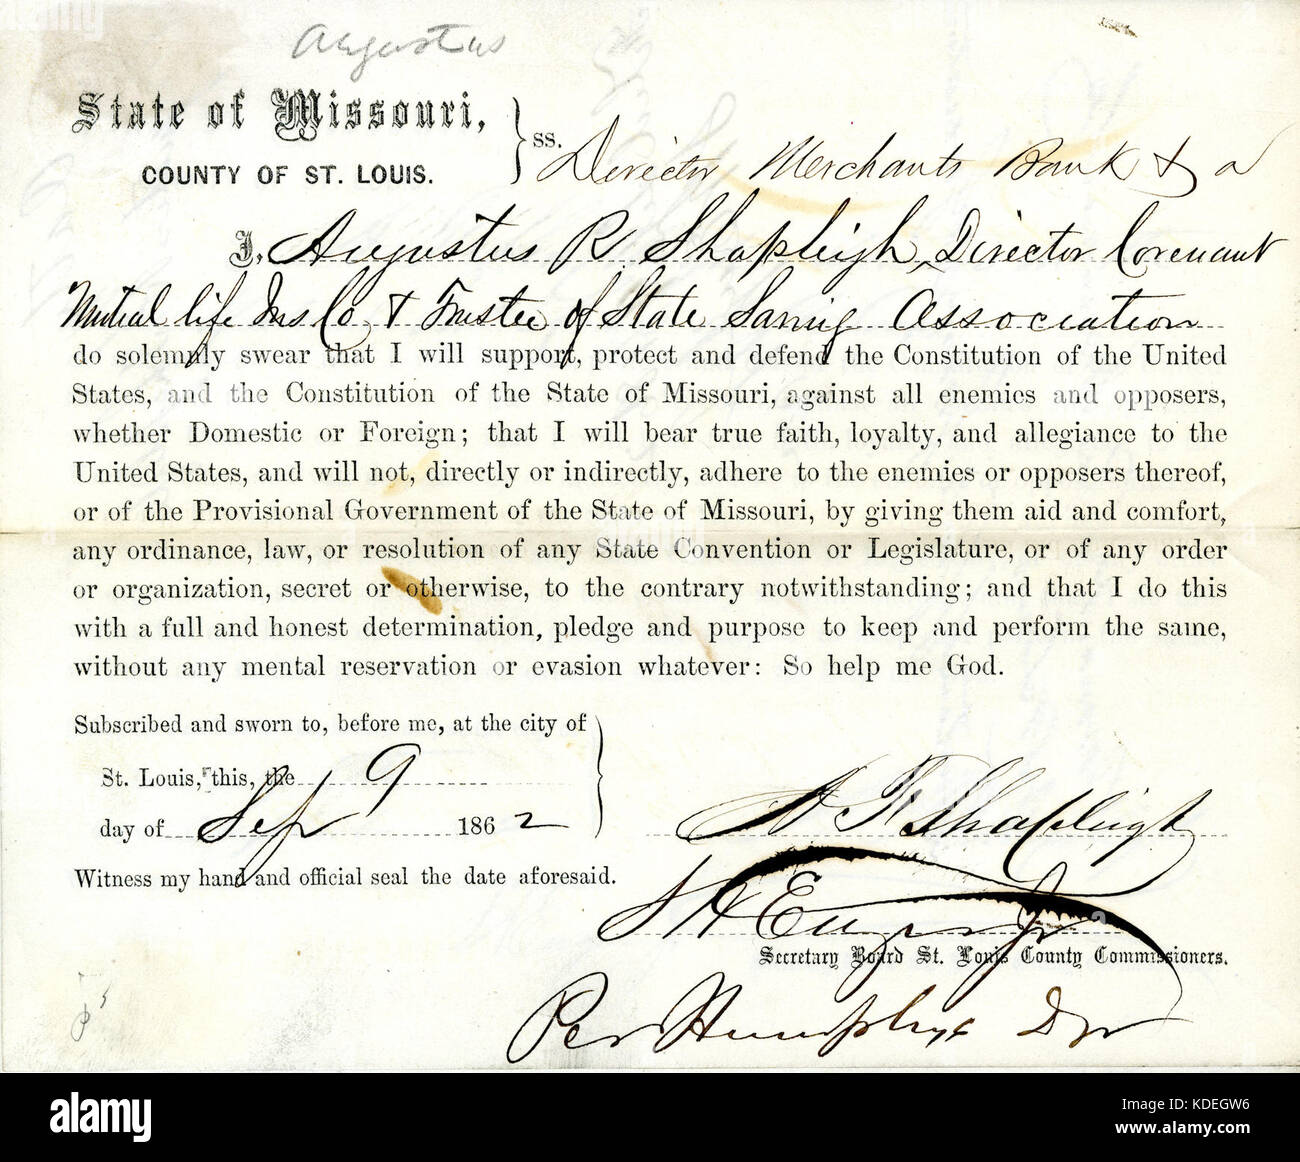 Augustus
State of Missouri,
COUNTY OF ST. LOUIS.
ss. Director Merchants Bank & a
I, Augustus R Shapleigh, Director Covenant
Mutual life Ins Co, & Trustee of State Saving Association
do solemnly swear that I will support, protect and defend the Constitution of the United
States, and the Constitution of the State of Missouri, against all enemies and opposers,
whether Domestic or Foreign; that I will bear true faith, loyalty, and allegiance to the
United States, and will not, directly or indirectly, adhere to the enemies or opposers thereof,
or of the Provisional Government of the State of Missouri, by giving them aid and comfort,
any ordinance, law, or resolution of any State Convention or Legislature, or of any order
or organization, secret or otherwise, to the contrary notwithstanding; and that I do this
with a full and honest determination, pledge and purpose to keep and perform the same,
without any mental reservation or evasion whatever: So help me God.
Subscribed and sworn to, before me, at the city of
St. Louis, this, the 9
day of Sep 1862
A F Shapleigh
Witness my hand and official seal the date aforesaid.
Secretary Board St. Louis County Commissioners.
Per Humphrys
alamy
Image ID: KDEGW6
www.alamy.com